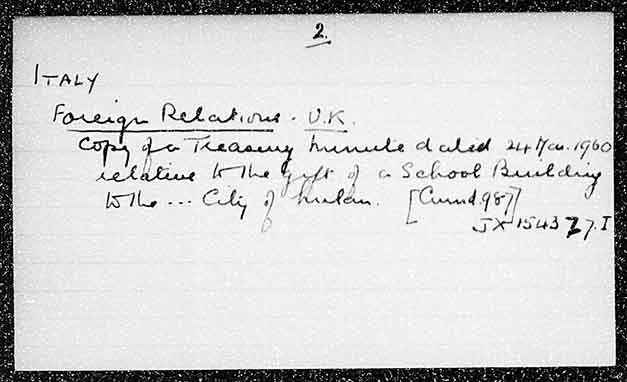 2.
ITALY
Foreign Relations - U.K.
Copy of a Treasury Minute dated 24 Mar. 1960
relative to the gift of a School Building
to the ... City of Milan. [Cmnd.987]
JX 15437.I